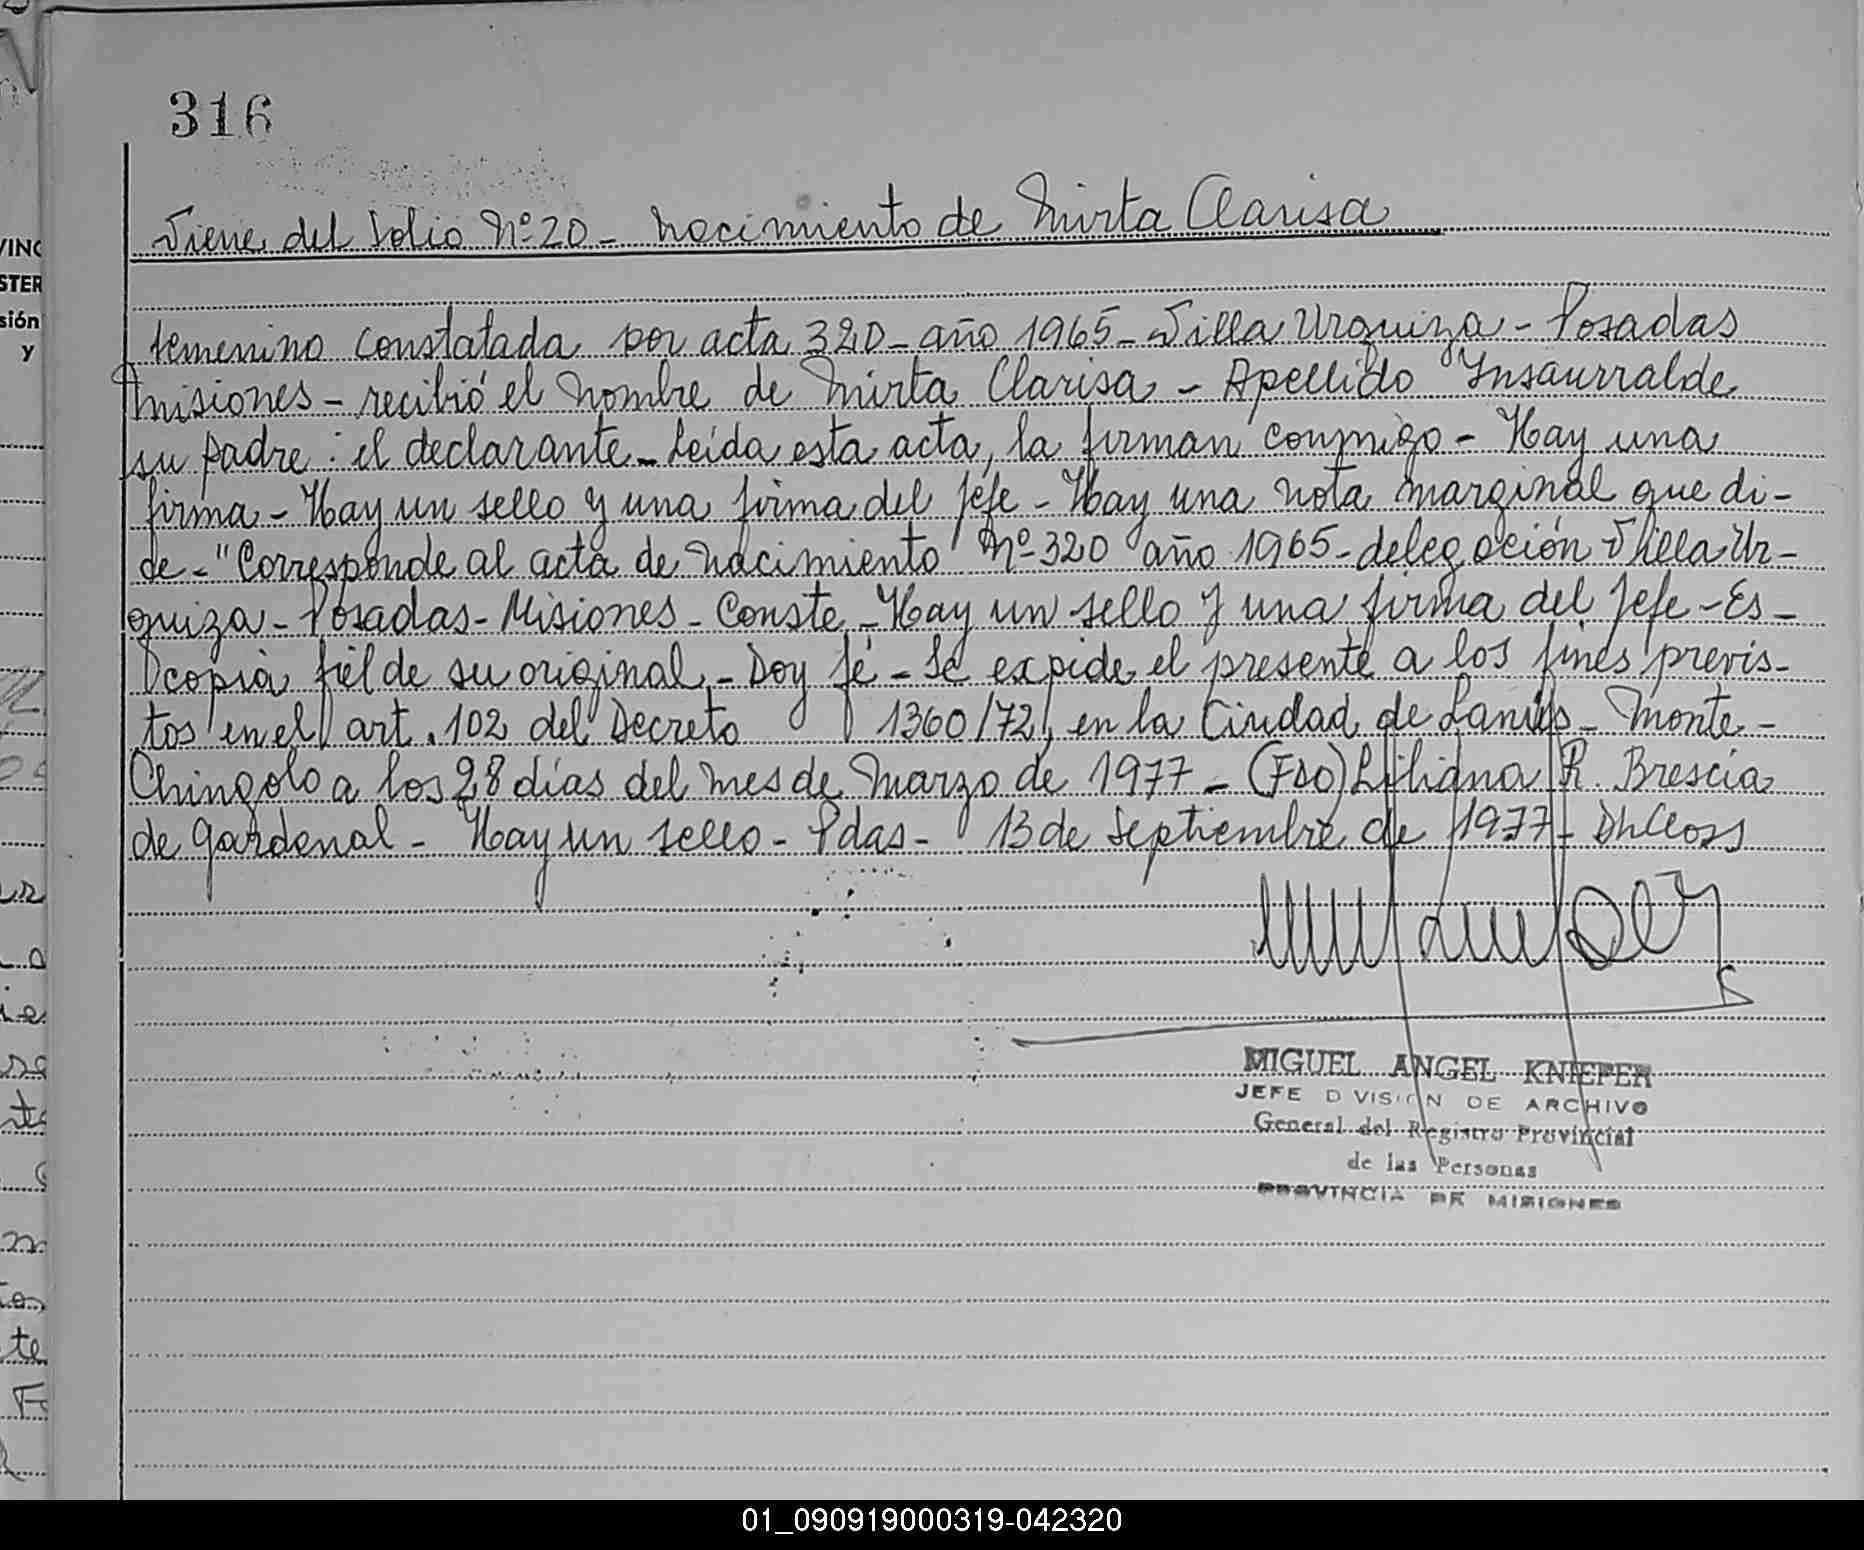 316
Viene del folio Nº 20 - Nacimiento de Mirta Clarisa
femenino constatada por acta 320 - año 1965 - Villa Urquiza - Posadas
Misiones - recibió el nombre de Mirta Clarisa - Apellido Ynsaurralde
su padre : el declarante - Leída esta acta, la firman conmigo - Hay una
firma - Hay un sello y una firma del Jefe - Hay una nota marginal que di-
ce - "Corresponde al acta de nacimiento Nº 320 año 1965 - delegación Villa Ur-
quiza - Posadas - Misiones - Conste - Hay un sello y una firma del Jefe - Es -
copia fiel de su original - Doy fé - Se expide el presente a los fines previs-
tos en el art. 102 del Decreto 1360/72, en la Ciudad de Lanús - Monte -
Chingolo a los 28 días del mes de Marzo de 1977 - (Fdo) Liliana R. Brescia
de Gardenal - Hay un sello - Pdas - 13 de Septiembre de 1977 -
MIGUEL ANGEL KNIEPER
JEFE DIVISION DE ARCHIVO
General del Registro Provincial
de las Personas
PROVINCIA DE MISIONES
01_090919000319-042320